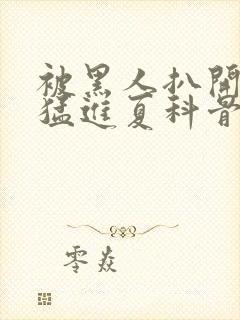 被黑人扒開
猛進夏科昔
零焱